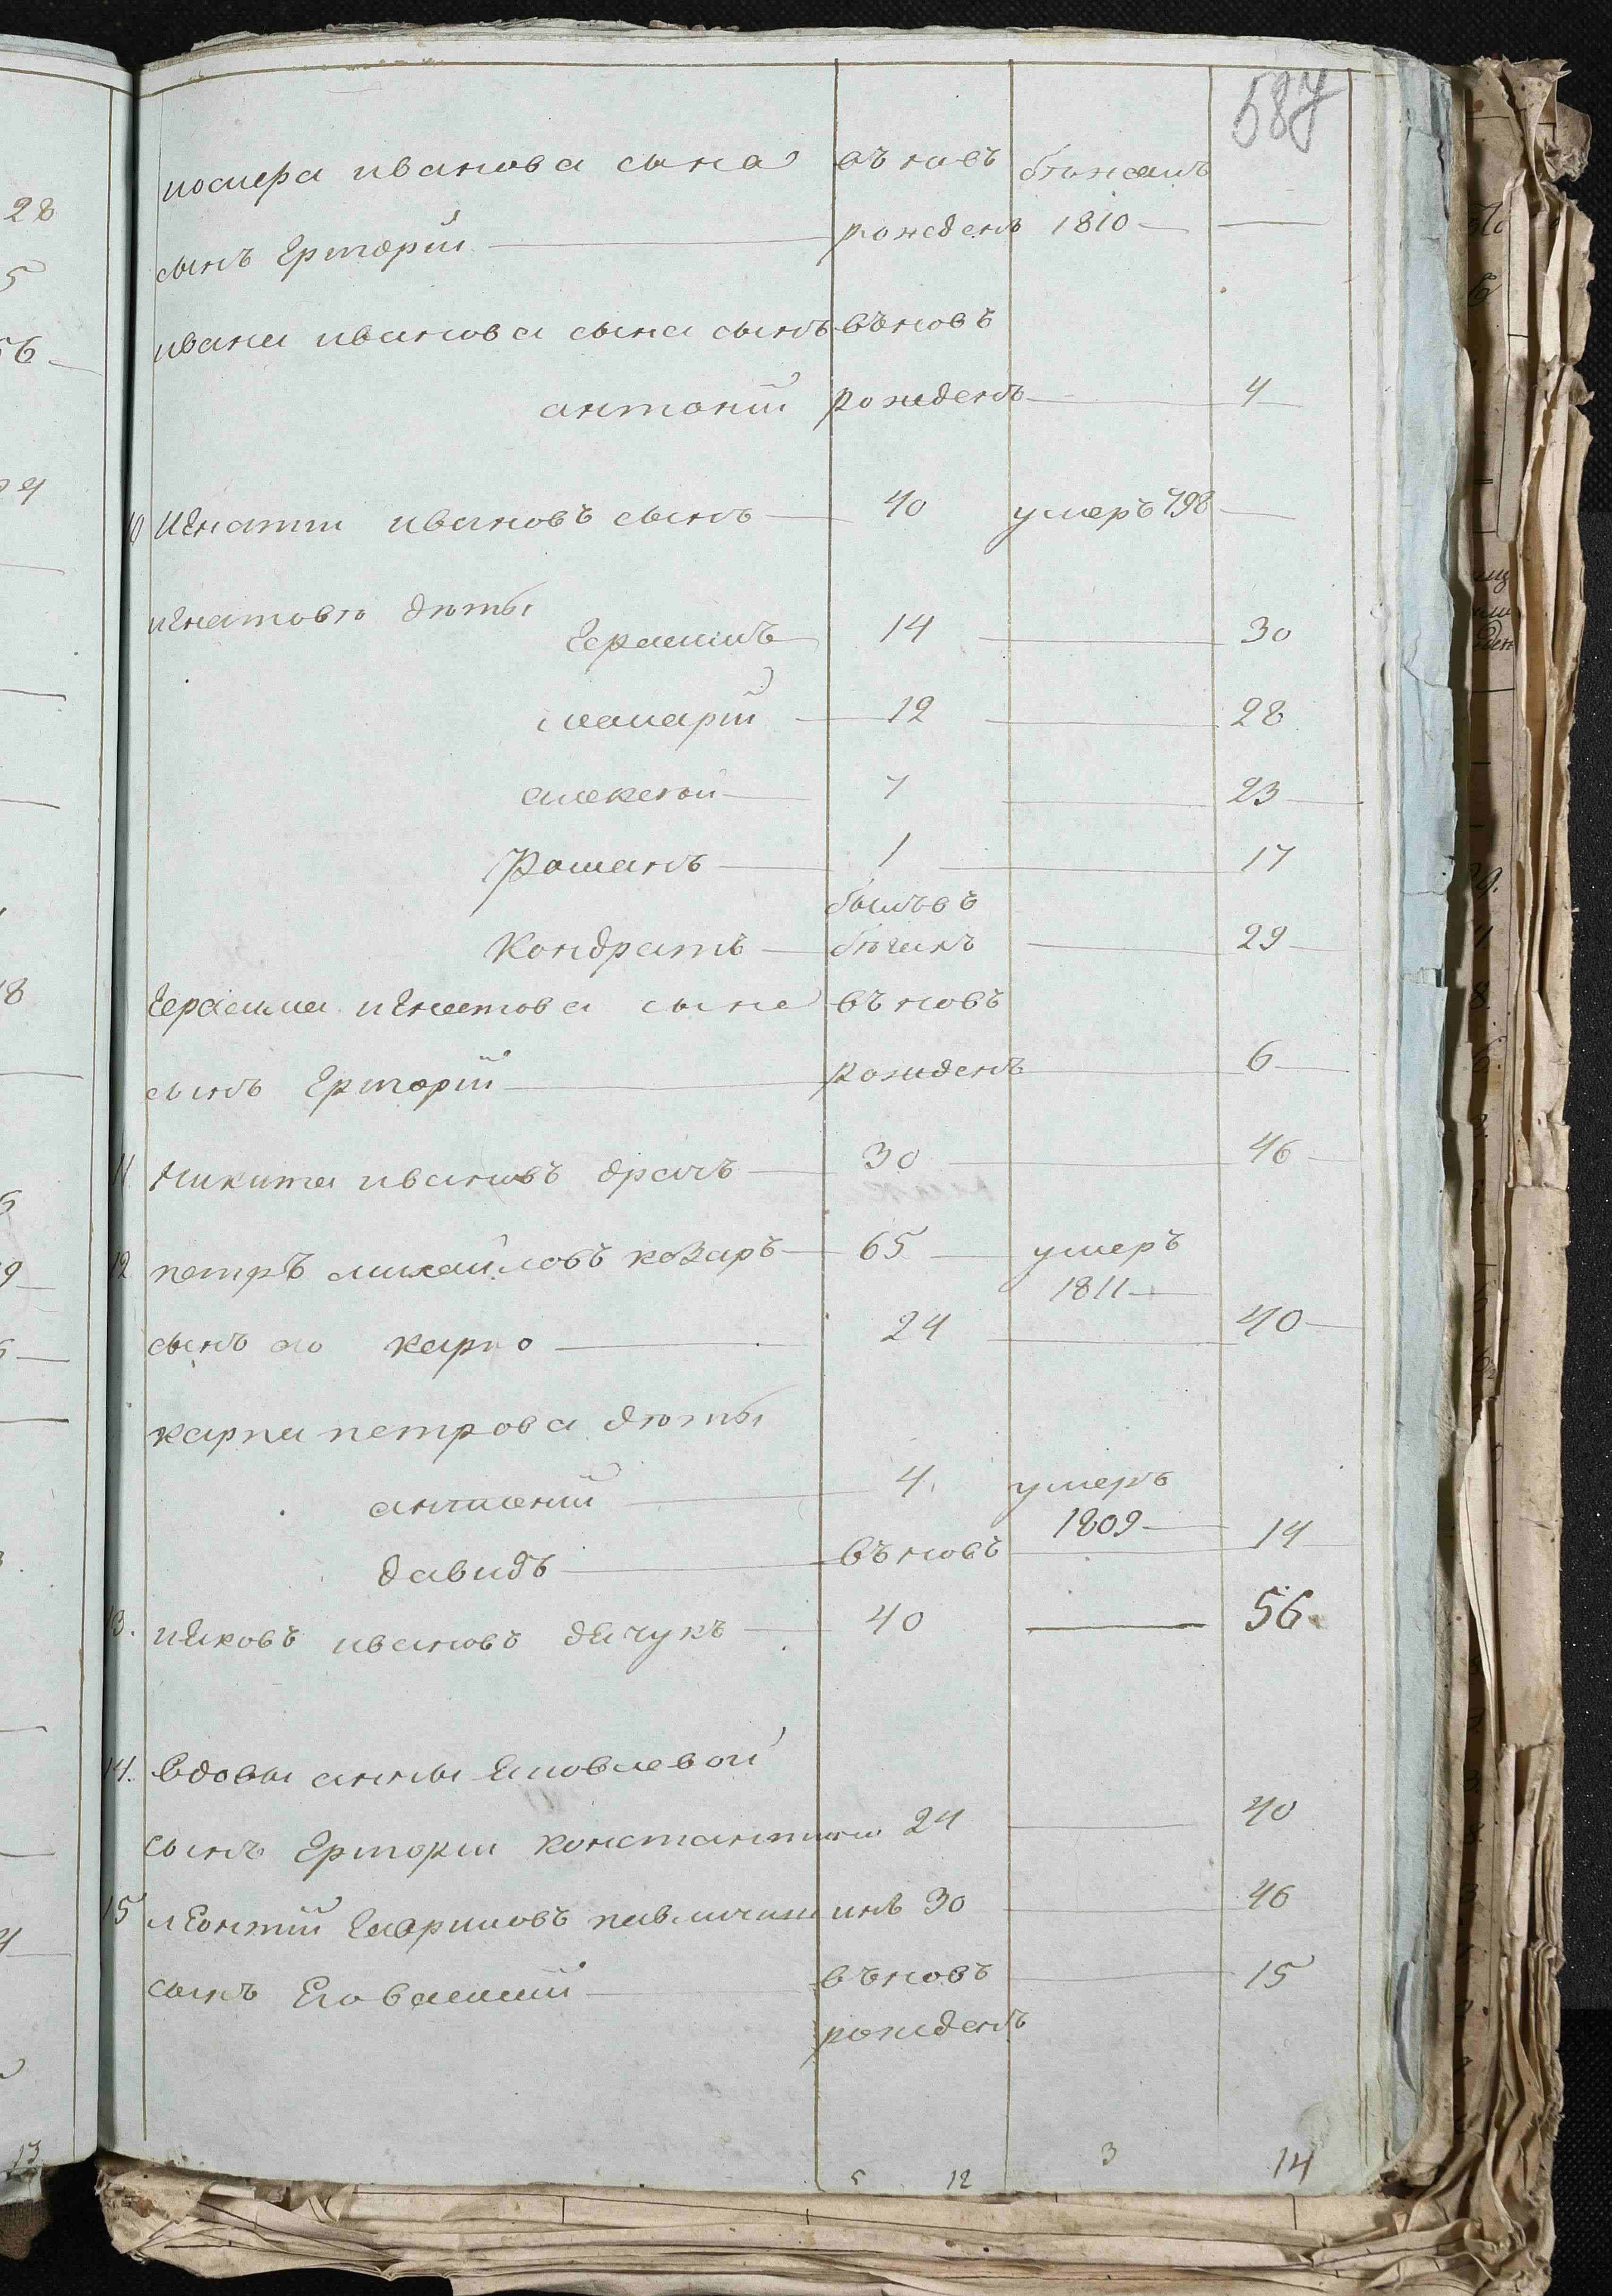 587
иосифа иванова сына въновь бѣжалъ
сынъ Григорій рожденъ 1810
ивана иванова сына сынъ въновь
антоній рожденъ 4
10 Игнатій ивановъ сынъ 40 умеръ 798
игнатовы дѣти
Герасимъ 14 30
макарій 12 28
алексѣй 7 23
Романъ 1 17
былъ въ
Кондратъ бѣгахъ 29
Герасима игнатова сына въновь
сынъ Григорій рожденъ 6
11 Никита ивановъ драчъ 30 46
12 петръ михайловъ козаръ 65 умеръ
1811
сынъ его карпо 24 40
карпа петрова дѣти
4 умеръ
1809
давидъ въновь 14
13. ияковъ ивановъ дячукъ 40 56
14. Вдовы анны Яковлевой
сынъ Григорій константиновъ 24 40
15 леонтій Гавриловъ 30 46
сынъ въновь 15
рожденъ
5 12 3 14
28
5
56
18
13